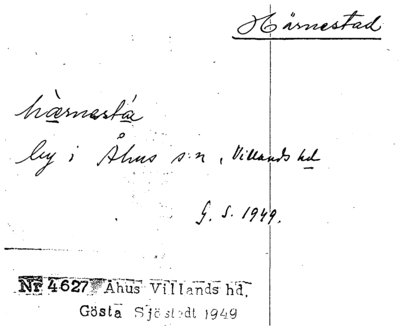 Härnestad
hàrnəstá
by i Åhus s:n, Villands hd
G. S. 1949.
Nr 4627 Åhus Villands hd.
Gösta Sjöstedt 1949